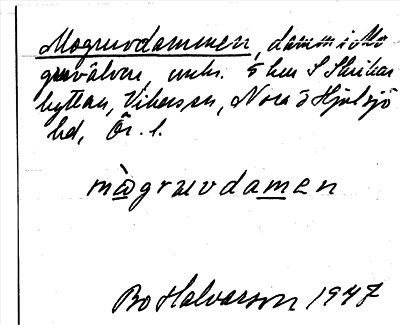 Mogruvdammen, damm i Mo
gruvälven, omkr. 5 hm S Skrikar
hyttan, Vikers sn, Nora o Hjulsjö
hd, Ör. l.
màgrʉvdamen
Bo Halvarson 1947